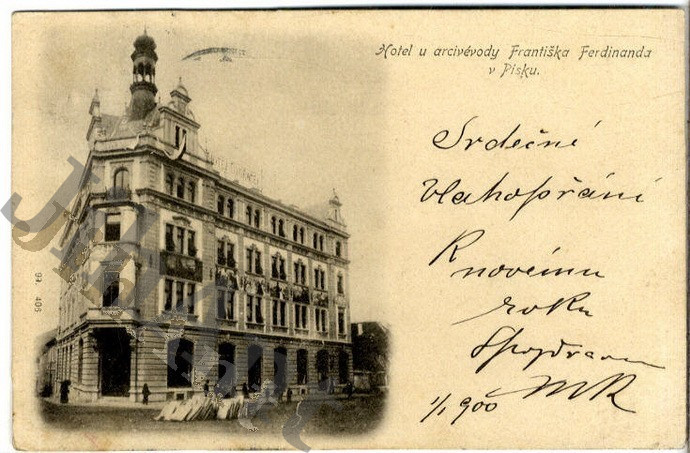 Hotel u arcivévody Františka Ferdinanda
v Písku.
Srdečné
Blahopřání
K novému
roku
MR
1/1 900
93 406